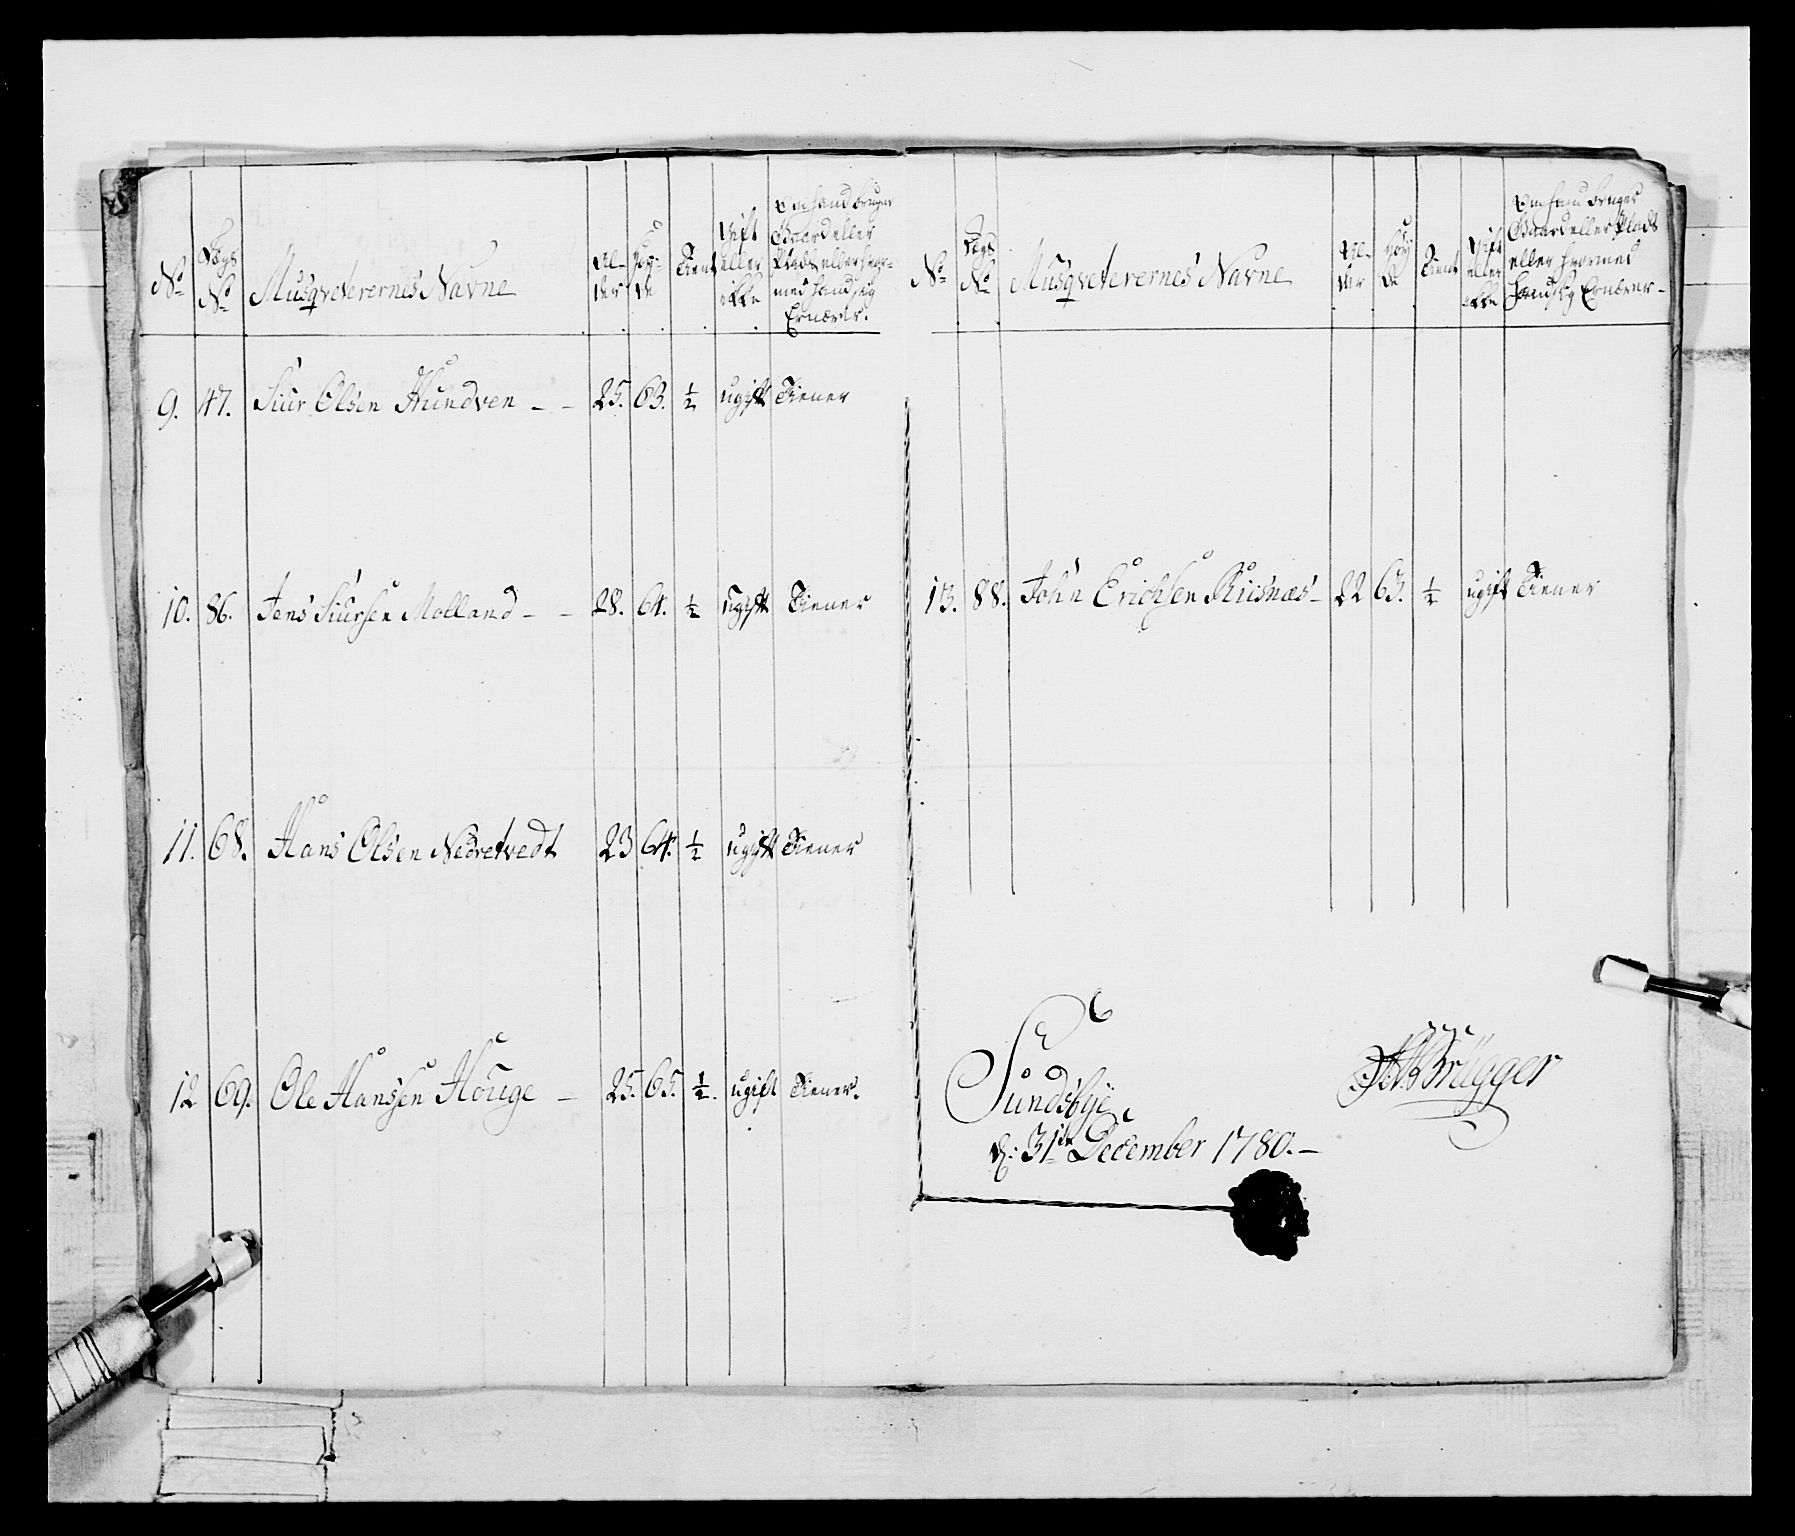 No
Lægs No
Musqveterernes Navne
Al-
der
Høy-
de
Tient
Gift
eller
ikke
Om hand bruger
Gaard eller
Plads eller hvor-
med hand sig
Ernærer.
9. 47. Siur Olsen Hundven - - 25. 63. ½ ugift Tiener
10. 86. Jens Siursen Molland - - 28. 64. ½ Ugift Tiener
11. 68. Hans Olsen Nedretvedt 23 64. ½ ugift Tiener
12 69. Ole Hansen Houge - 25. 65. ½. ugift Tiener.
No
Lægs
No
Musqveterernes Navne
Al-
der
Høy
de
Tient
Gift
eller
ikke
Om hand bruger
Gaard eller Plads
eller hvormed
Hand sig Ernærer -
13. 88. John Erichsen Riisnæs - 22 63. ½ ugift Tiener
Sundsbye
d: 31te December 1780. -
Brügger